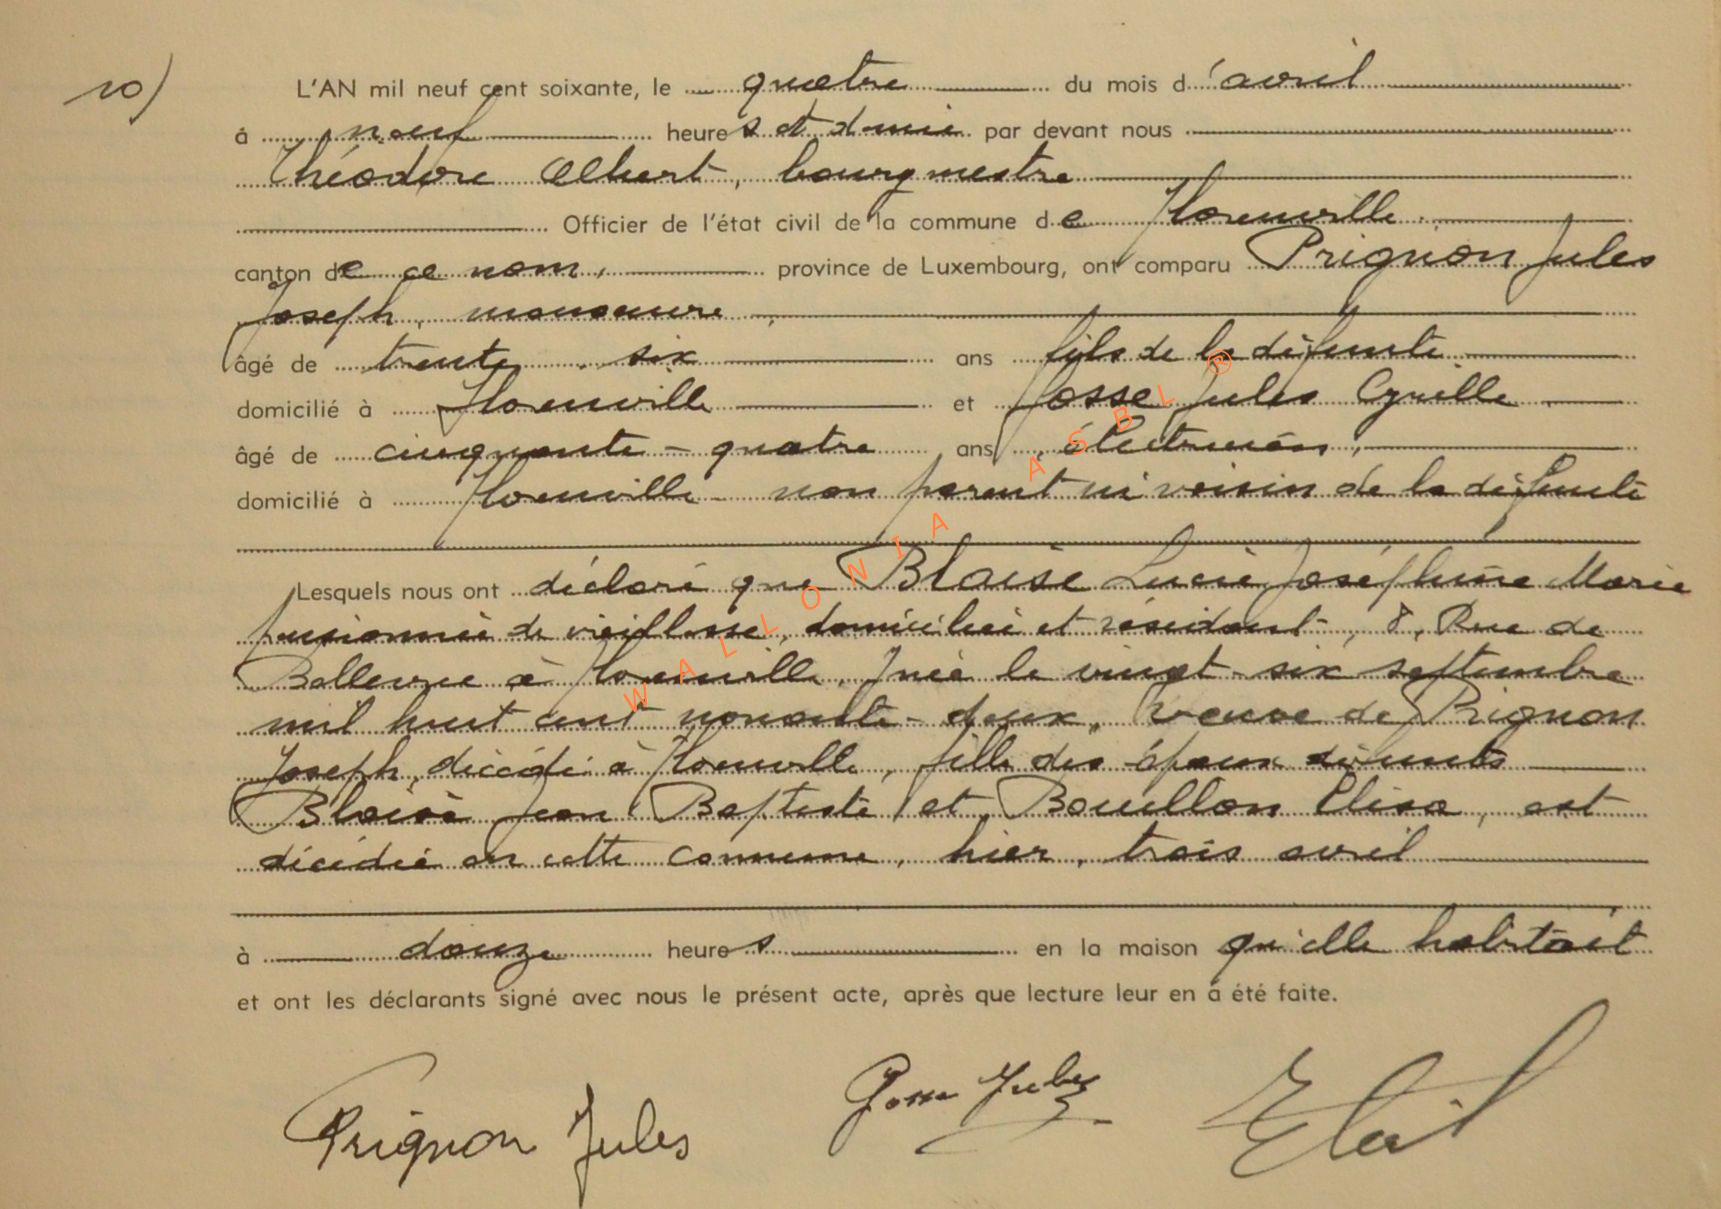 10)
L'AN mil neuf cent soixante, le quatre du mois d'avril
à neuf heures et demie par devant nous
Théodore Albert, bourgmestre
Officier de l'état civil de la commune de Florenville.
canton de ce nom, province de Luxembourg, ont comparu Prignon Jules
Joseph, manoeuvre,
âgé de trente six ans fils de la défunte
domicilié à Florenville et Josse Jules Cyrille
âgé de cinquante-quatre ans, électricien,
domicilié à Florenville non parent ni voisin de la défunte
Lesquels nous ont déclaré que Blaise Lucie Joséphine Marie
pensionnée de vieillesse, domiciliée et résidant, 8, Rue de
Bellevue à Florenville, y née le vingt-six septembre
mil huit cent nonante-deux, veuve de Prignon
Joseph, décédé à Florenville, fille des époux défunts
Blaise Jean Baptiste et Bouillon Elisa, est
décédée en cette commune, hier, trois avril
à douze heures en la maison qu'elle habitait
et ont les déclarants signé avec nous le présent acte, après que lecture leur en à été faite.
Prignon Jules Josse Jules
WALLONIA ASBL ®